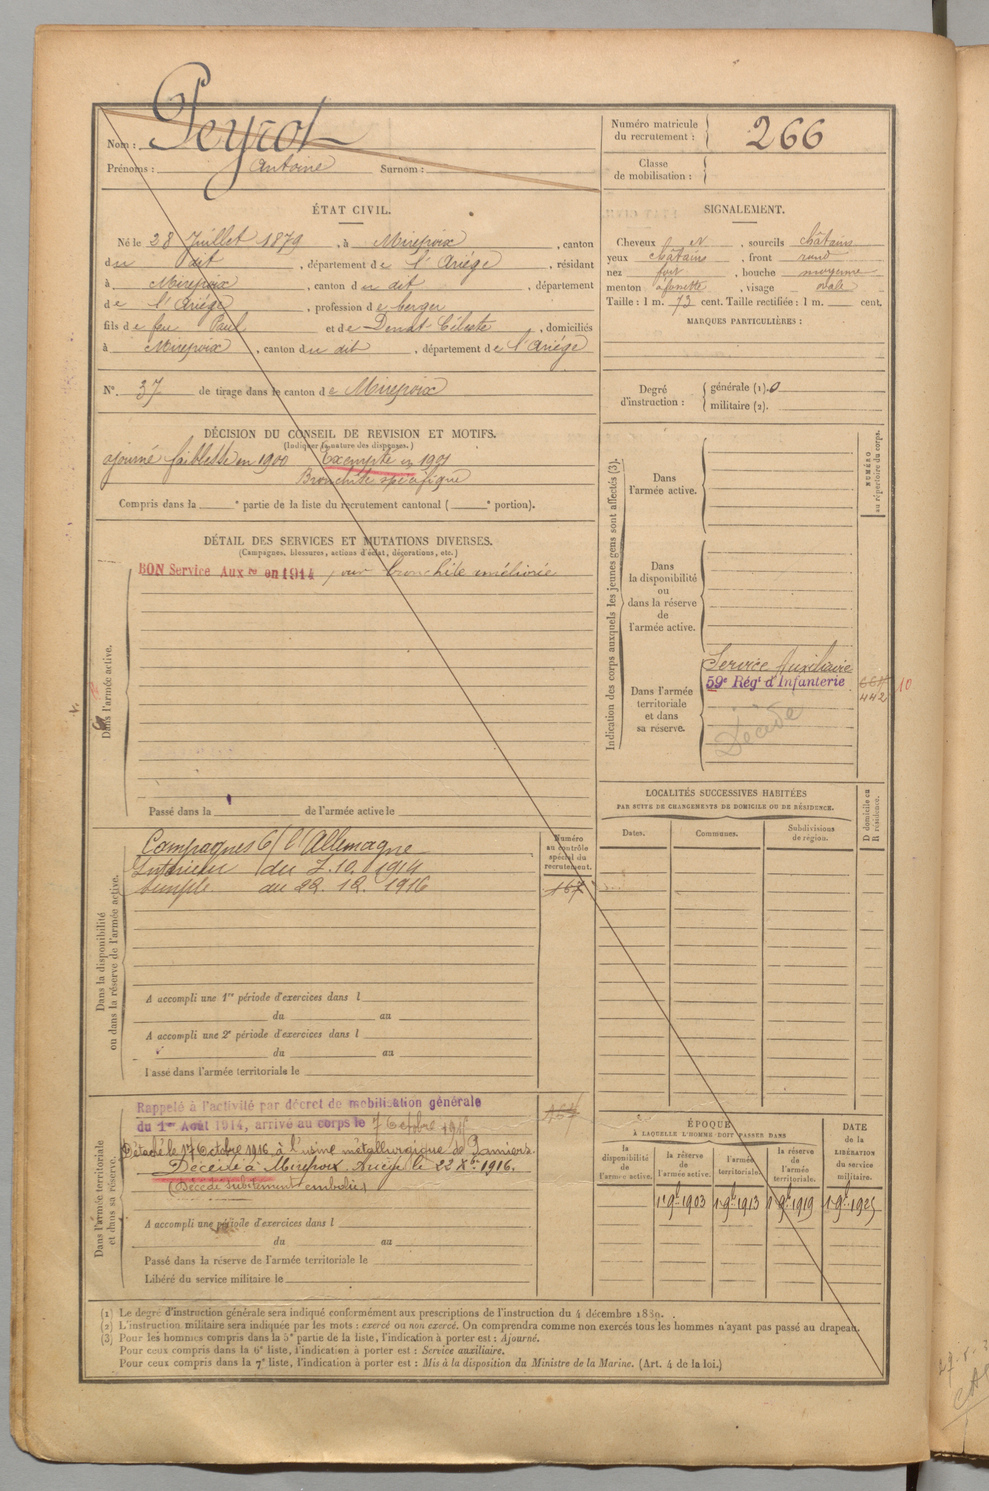 Nom : Peyrot
Prénoms : Antoine Surnom :
Numéro matricule du recrutement : 266
Classe de mobilisation :
ÉTAT CIVIL.
Né le 28 Juillet 1879, à Mirepoix, canton
du dit, département de l'Ariège, résidant
à Mirepoix, canton du dit, département
de l'Ariège, profession de berger
fils de feu Paul et de Denat Céleste, domiciliés
à Mirepoix, canton du dit, département de l'Ariège
N° 37 de tirage dans le canton de Mirepoix
SIGNALEMENT.
Cheveux et, sourcils châtains
yeux châtains, front rond
nez fort, bouche moyenne
menton à fossette, visage ovale
Taille : 1 m. 73 cent. Taille rectifiée : 1 m. cent.
MARQUES PARTICULIÈRES :
Degré d'instruction : générale (1). 0
militaire (2).
DÉCISION DU CONSEIL DE REVISION ET MOTIFS.
(Indiquer la nature des dispenses.)
ajourné faiblesse en 1900 Exempté en 1901
Bronchite spécifique
Compris dans la e partie de la liste du recrutement cantonal ( e portion).
DÉTAIL DES SERVICES ET MUTATIONS DIVERSES.
(Campagnes, blessures, actions d'éclat, décorations, etc.)
Dans l'armée active.
BON Service Auxre en 1914 pour bronchite améliorée
Passé dans la de l'armée active le
Indication des corps auxquels les jeunes gens sont affectés (3).
NUMÉRO au répertoire du corps.
Dans l'armée active.
Dans la disponibilité ou dans la réserve de l'armée active.
Dans l'armée territoriale et dans sa réserve.
Service Auxiliaire
59e Régt d'Infanterie
442 10
Décédé
LOCALITÉS SUCCESSIVES HABITÉES
PAR SUITE DE CHANGEMENTS DE DOMICILE OU DE RÉSIDENCE.
Dates. Communes. Subdivisions de région.
D domicile ou R résidence.
Dans la disponibilité ou dans la réserve de l'armée active.
Numéro au contrôle spécial du recrutement.
167
Campagnes C/ l'Allemagne
Intérieur du 7.10.1914
simple au 22.12.1916
A accompli une 1re période d'exercices dans l
du au
A accompli une 2e période d'exercices dans l
du au
Passé dans l'armée territoriale le
Dans l'armée territoriale et dans sa réserve.
Rappelé à l'activité par décret de mobilisation générale
du 1er Août 1914, arrivé au corps le 7 octobre 1914
Détaché le 17 Octobre 1916 à l'usine métallurgique de Pamiers.
Décédé à Mirepoix Ariège le 22 Xbre 1916.
(Décédé subitement embolie)
A accompli une période d'exercices dans l
du au
Passé dans la réserve de l'armée territoriale le
Libéré du service militaire le
ÉPOQUE
À LAQUELLE L'HOMME DOIT PASSER DANS
la disponibilité de l'armée active. la réserve de l'armée active. l'armée territoriale. la réserve de l'armée territoriale.
DATE de la LIBÉRATION du service militaire.
1 9b 1903 1 9b 1913 1 9b 1919 1 9b 1925
(1) Le degré d'instruction générale sera indiqué conformément aux prescriptions de l'instruction du 4 décembre 1889.
(2) L'instruction militaire sera indiquée par les mots : exercé ou non exercé. On comprendra comme non exercés tous les hommes n'ayant pas passé au drapeau.
(3) Pour les hommes compris dans la 5e partie de la liste, l'indication à porter est : Ajourné.
Pour ceux compris dans la 6e liste, l'indication à porter est : Service auxiliaire.
Pour ceux compris dans la 7e liste, l'indication à porter est : Mis à la disposition du Ministre de la Marine. (Art. 4 de la loi.)